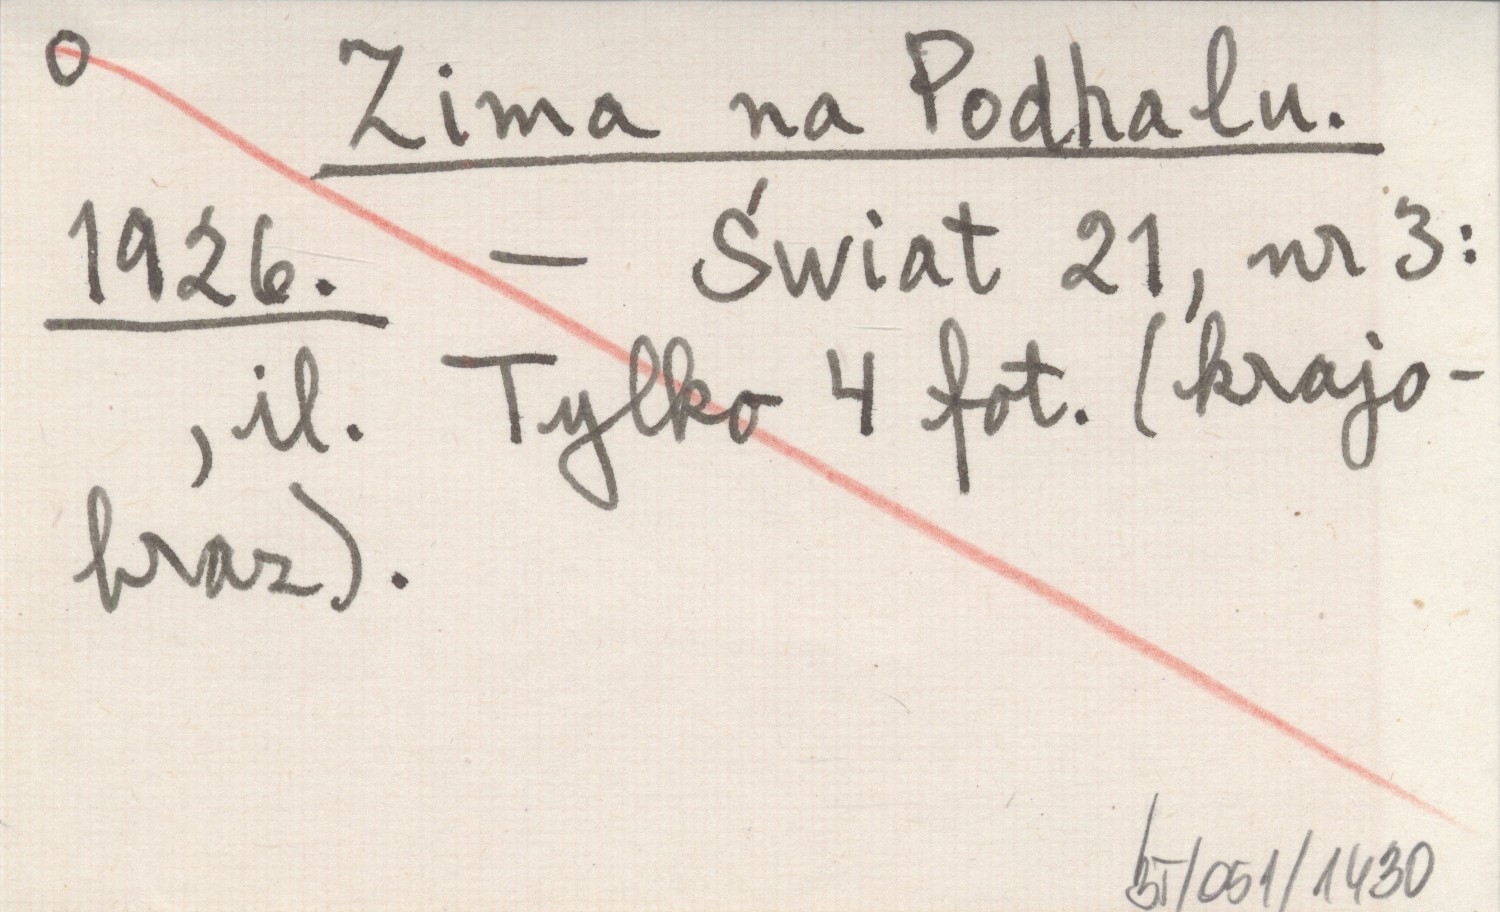 O Zima na Podhalu.
1926. — Świat 21, nr 3:
, il. Tylko 4 fot. (krajo-
braz).
/051/1430